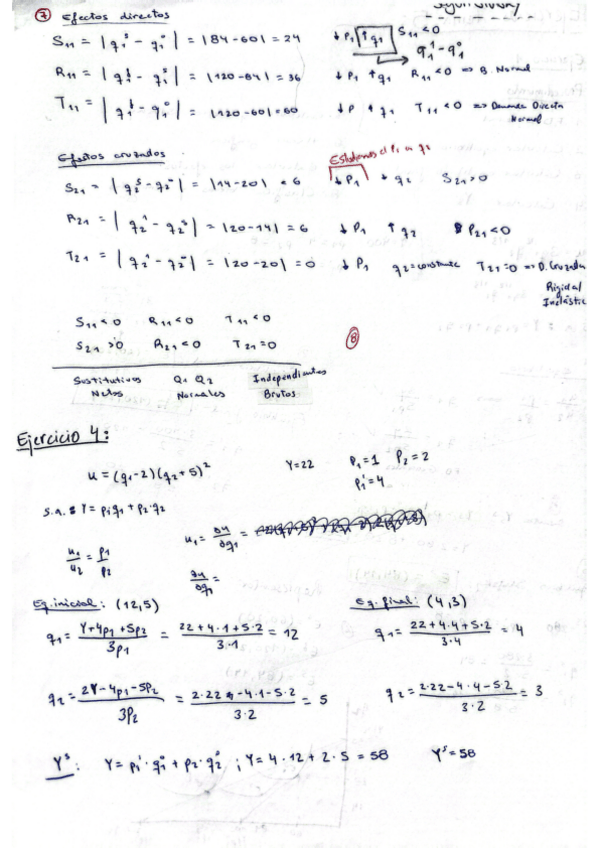 7 Efectos directos
S11 = |q1^s - q1^0| = |84-60| = 24 ↓P1 ↑q1 S11<0
q1^1 - q1^0
R11 = |q1^1 - q1^s| = |120-84| = 36 ↓P1 ↑q1 R11<0 => B. Normal
T11 = |q1^1 - q1^0| = |120-60| = 60 ↓P ↑q1 T11<0 => Demanda Directa
Normal
Efectos cruzados
Estudiamos el P1 a q2
S21 = |q2^s - q2^0| = |14-20| = 6 ↓P1 ↓q2 S21>0
R21 = |q2^1 - q2^s| = |20-14| = 6 ↓P1 ↑q2 R21<0
T21 = |q2^1 - q2^0| = |20-20| = 0 ↓P1 q2=constante T21=0 => D. Cruzada
Rígida/
Inelástic
S11<0 R11<0 T11<0
S21>0 R21<0 T21=0
8
Sustitutivos Q1 Q2 Independientes
Netos Normales Brutos
Ejercicio 4:
u = (q1-2)(q2+5)^2 Y=22 P1=1 P2=2
P1'=4
s.a. Y = p1q1 + p2·q2
u1 = ∂u/∂q1 =
u1/u2 = p1/p2
∂u/∂q1 =
Eq. inicial: (12,5) Eq. final: (4,3)
q1 = (Y+4p1+5p2)/3p1 = (22+4·1+5·2)/3·1 = 12 q1 = (22+4·4+5·2)/3·4 = 4
q2 = (2Y-4p1-5P2)/3P2 = (2·22-4·1-5·2)/3·2 = 5 q2 = (2·22-4·4-5·2)/3·2 = 3
Y^s: Y = p1'·q1^0 + p2·q2^0 ; Y = 4·12+2·5 = 58 Y^s = 58